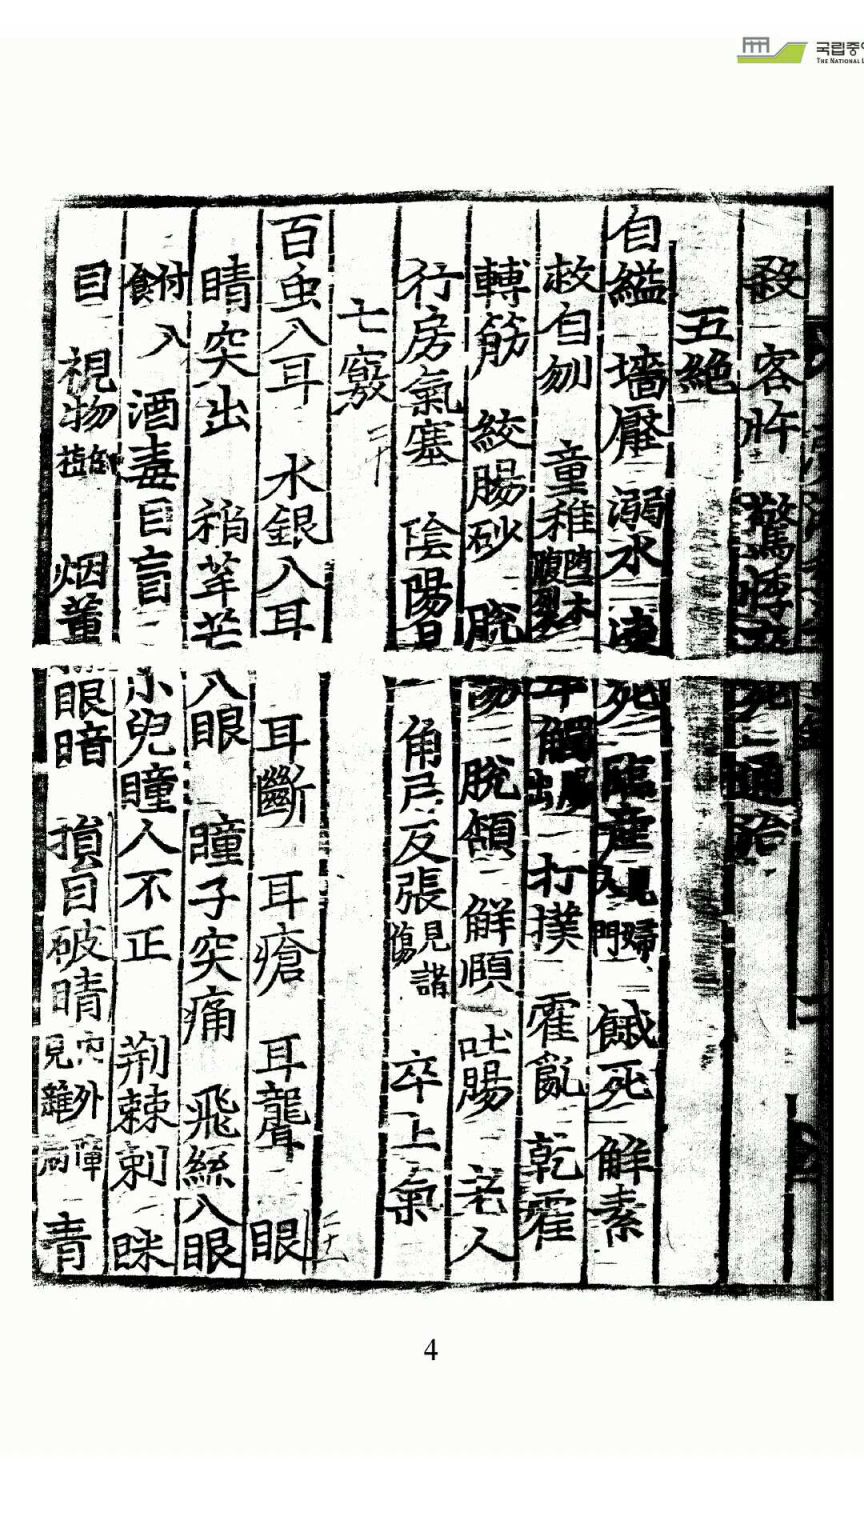 국립중
THE NATIONAL L
殺 客忤 驚悸 死 通治
五絶
自縊 墻壓 溺水 凍死 臨産 見婦人門 餓死 解素
救自刎 童稚 堕木腹裂 牛觸 出 打撲 霍亂 乾霍
轉筋 絞腸砂 脫陽 脫頷 解顱 吐腸 老人
行房氣塞 陰陽易 角弓反張 見諸傷 卒上氣
七竅 二十
百虫入耳 水銀入耳 耳斷 耳瘡 耳聾 眼
睛突出 稍芒入眼 瞳子突痛 飛絲入眼
付 入 酒毒目盲 小兒瞳人不正 荊棘刺 眯
目 視物 烟薰眼暗 損目破睛 內外障見雜病 青
4